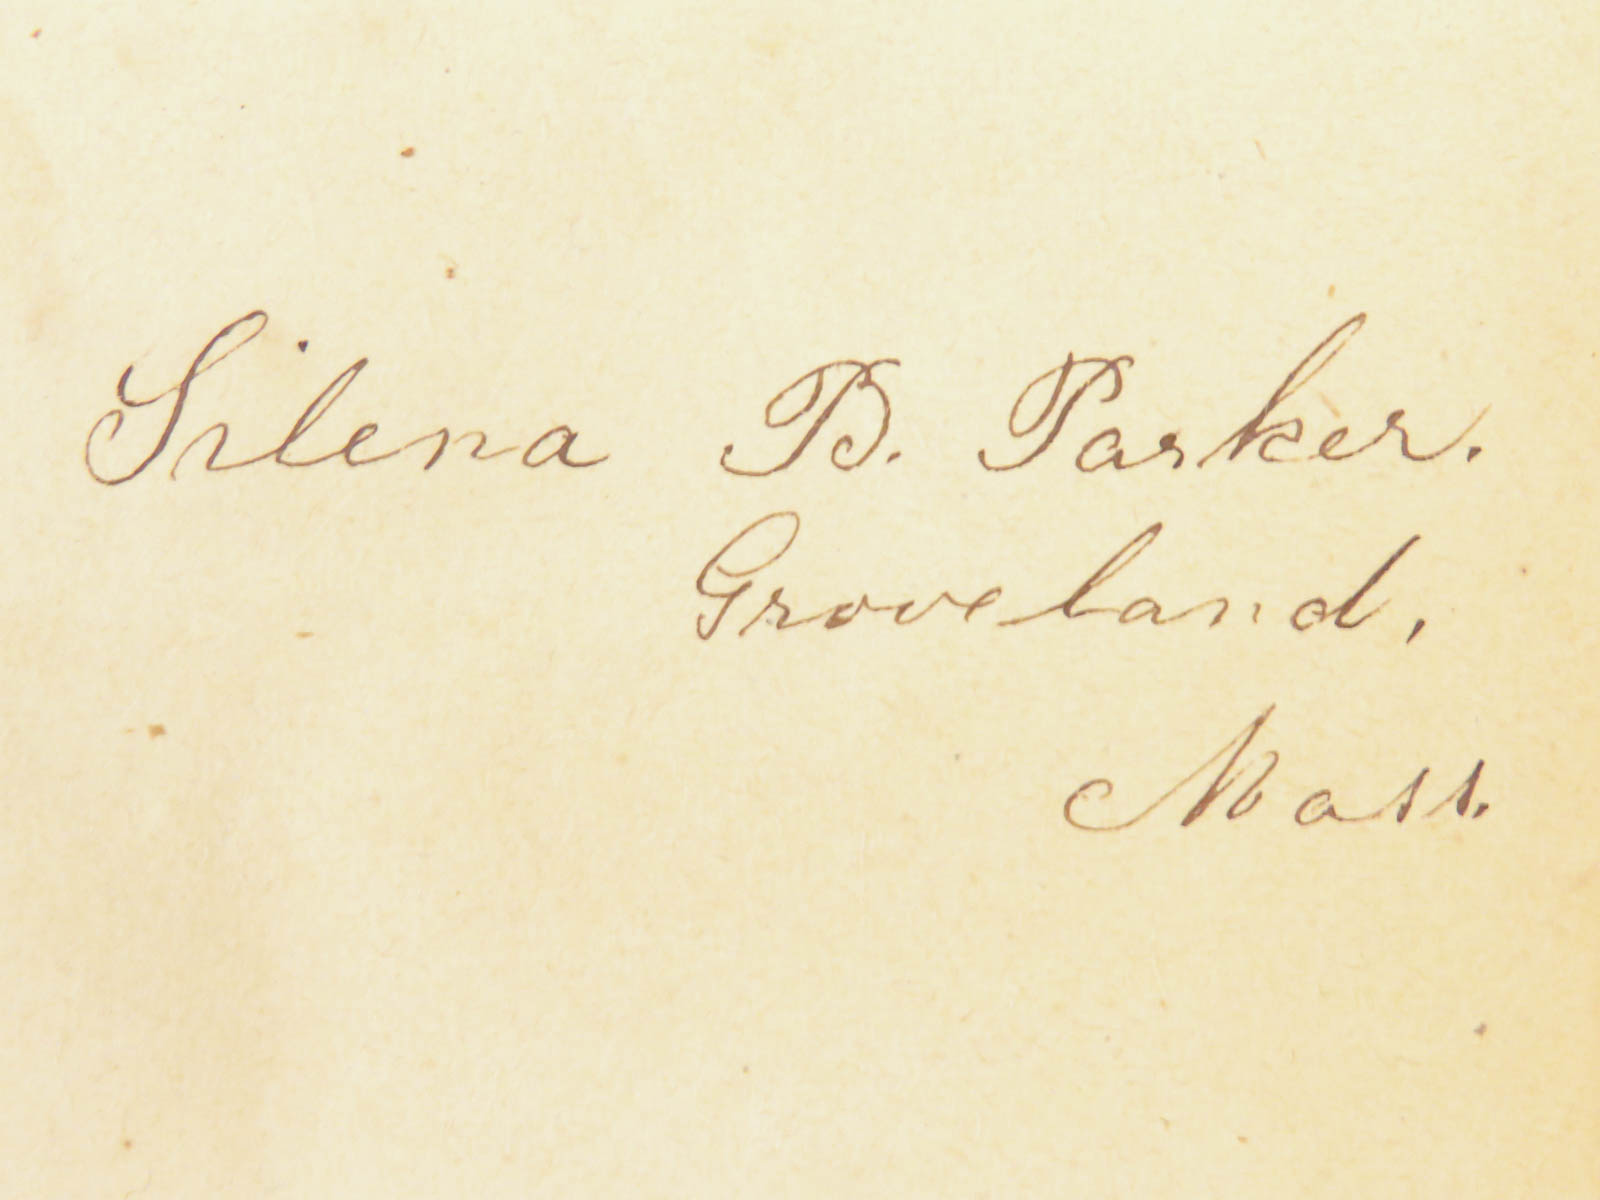 Silena B. Parker.
Groveland,
Mass.